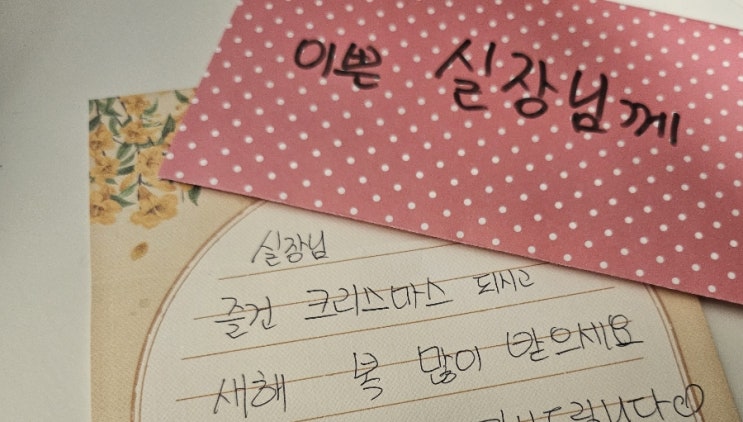 이쁜 실장님께
실장님
즐건 크리스마스 되시고
새해 복 많이 받으세요